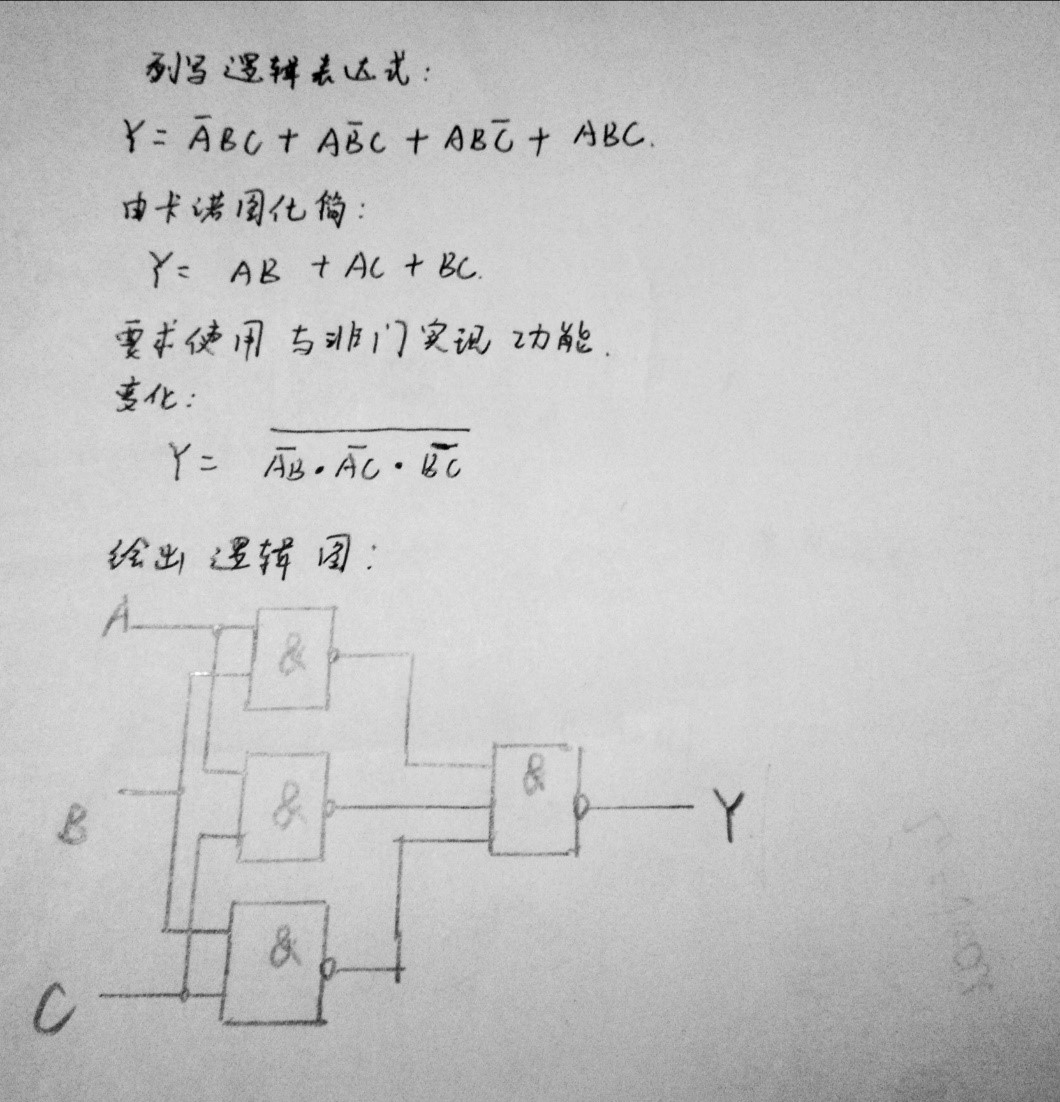 列写逻辑表达式:
Y = A̅BC + AB̅C + ABC̅ + ABC.
由卡诺图化简:
Y = AB + AC + BC.
要求使用与非门实现功能.
变化:
Y = \overline{\overline{AB}·\overline{AC}·\overline{BC}}
绘出逻辑图:
A
&
&
&
B
Y
&
C